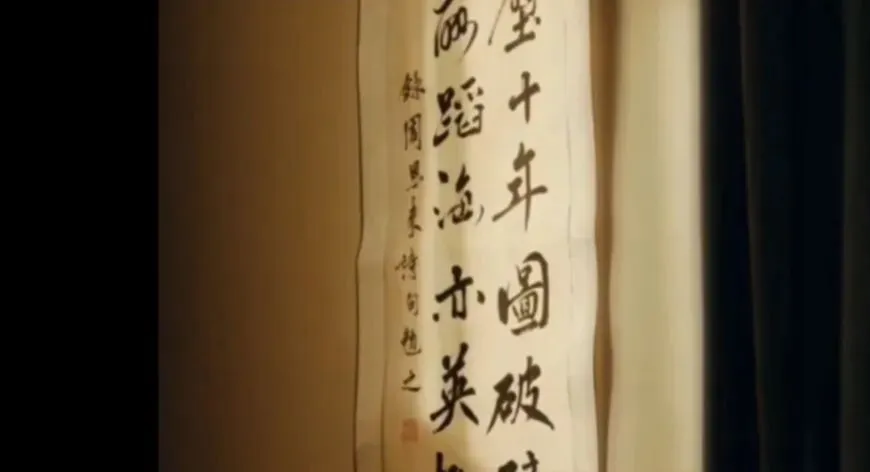 壁十年圖破
酬蹈海亦英
錄周恩来詩句題之